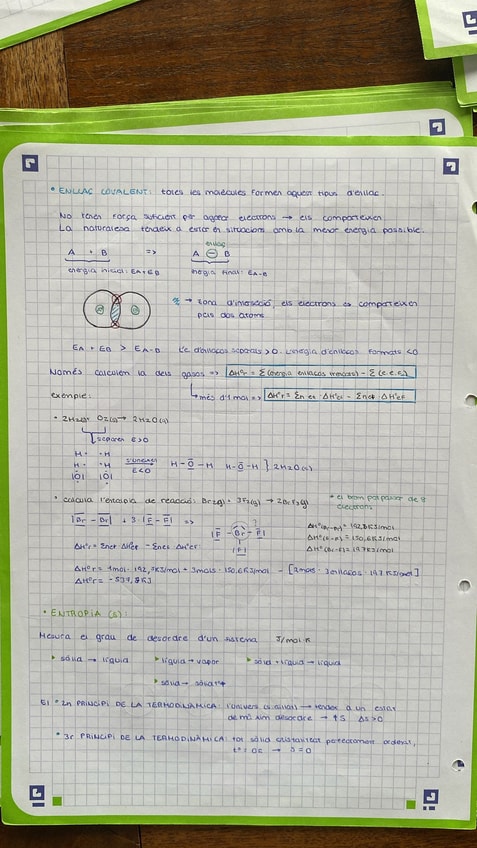 • ENLLAÇ COVALENT: totes les molècules formen aquest tipus d'enllaç.
No tenen força suficient per agafar electrons → els comparteixen
La naturalesa tendeix a estar en situacions amb la menor energia possible.
enllaç
A + B => A B
energia inicial: EA+EB energia final: EA-B
→ zona d'intersecció, els electrons es comparteixen
pels dos àtoms.
EA + EB > EA-B L'E d'enllaços separats >0. L'energia d'enllaços formats <0
Només calculem la dels gasos => ΔHºr =
més d'1 mol => ΔHºr =
exemple:
• 2H2(g) + O2(g) → 2H2O(g)
separen E>0
H · · H
H · · H s'uneixen => H - O - H H - O - H } 2H2O(g)
E<0
• Calcula l'entalpia de reacció: Br2(g) + 3F2(g) → 2BrF3(g) * el brom pot passar de 8
electrons
|Br - Br| + 3 · |F - F| => |F - Br - F|
|F|
ΔHº(Br-Br) = 192,8KJ/mol
ΔHº(F-F) = 150,6KJ/mol
ΔHº(Br-F) = 197KJ/mol
ΔHºr = 1mol · 192,8KJ/mol + 3mols · 150,6KJ/mol - [2mols · 3enllaços · 197KJ/mol]
ΔHºr = -537,8KJ
• ENTROPIA (S):
Mesura el grau de desordre d'un sistema J/mol·K
▸ sòlid → líquid ▸ líquid → vapor ▸ sòlid + líquid → líquid
El • 2n PRINCIPI DE LA TERMODINÀMICA: l'univers tendeix a un estat
de màxim desordre → ↑S ΔS>0
• 3r PRINCIPI DE LA TERMODINÀMICA: tot sòlid cristal·litzat perfectament ordenat,
tª = 0K → S = 0